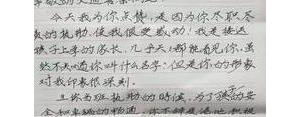 今天我为你点赞，是因为你尽职尽
责的执勤，使我很受感动！我是接送
孩子上学的家长，几乎天天都能看见你，虽
然不知道你叫什么名字，但是你的形象
对我印象很深刻。
上你当班执勤的时候，为了孩的安